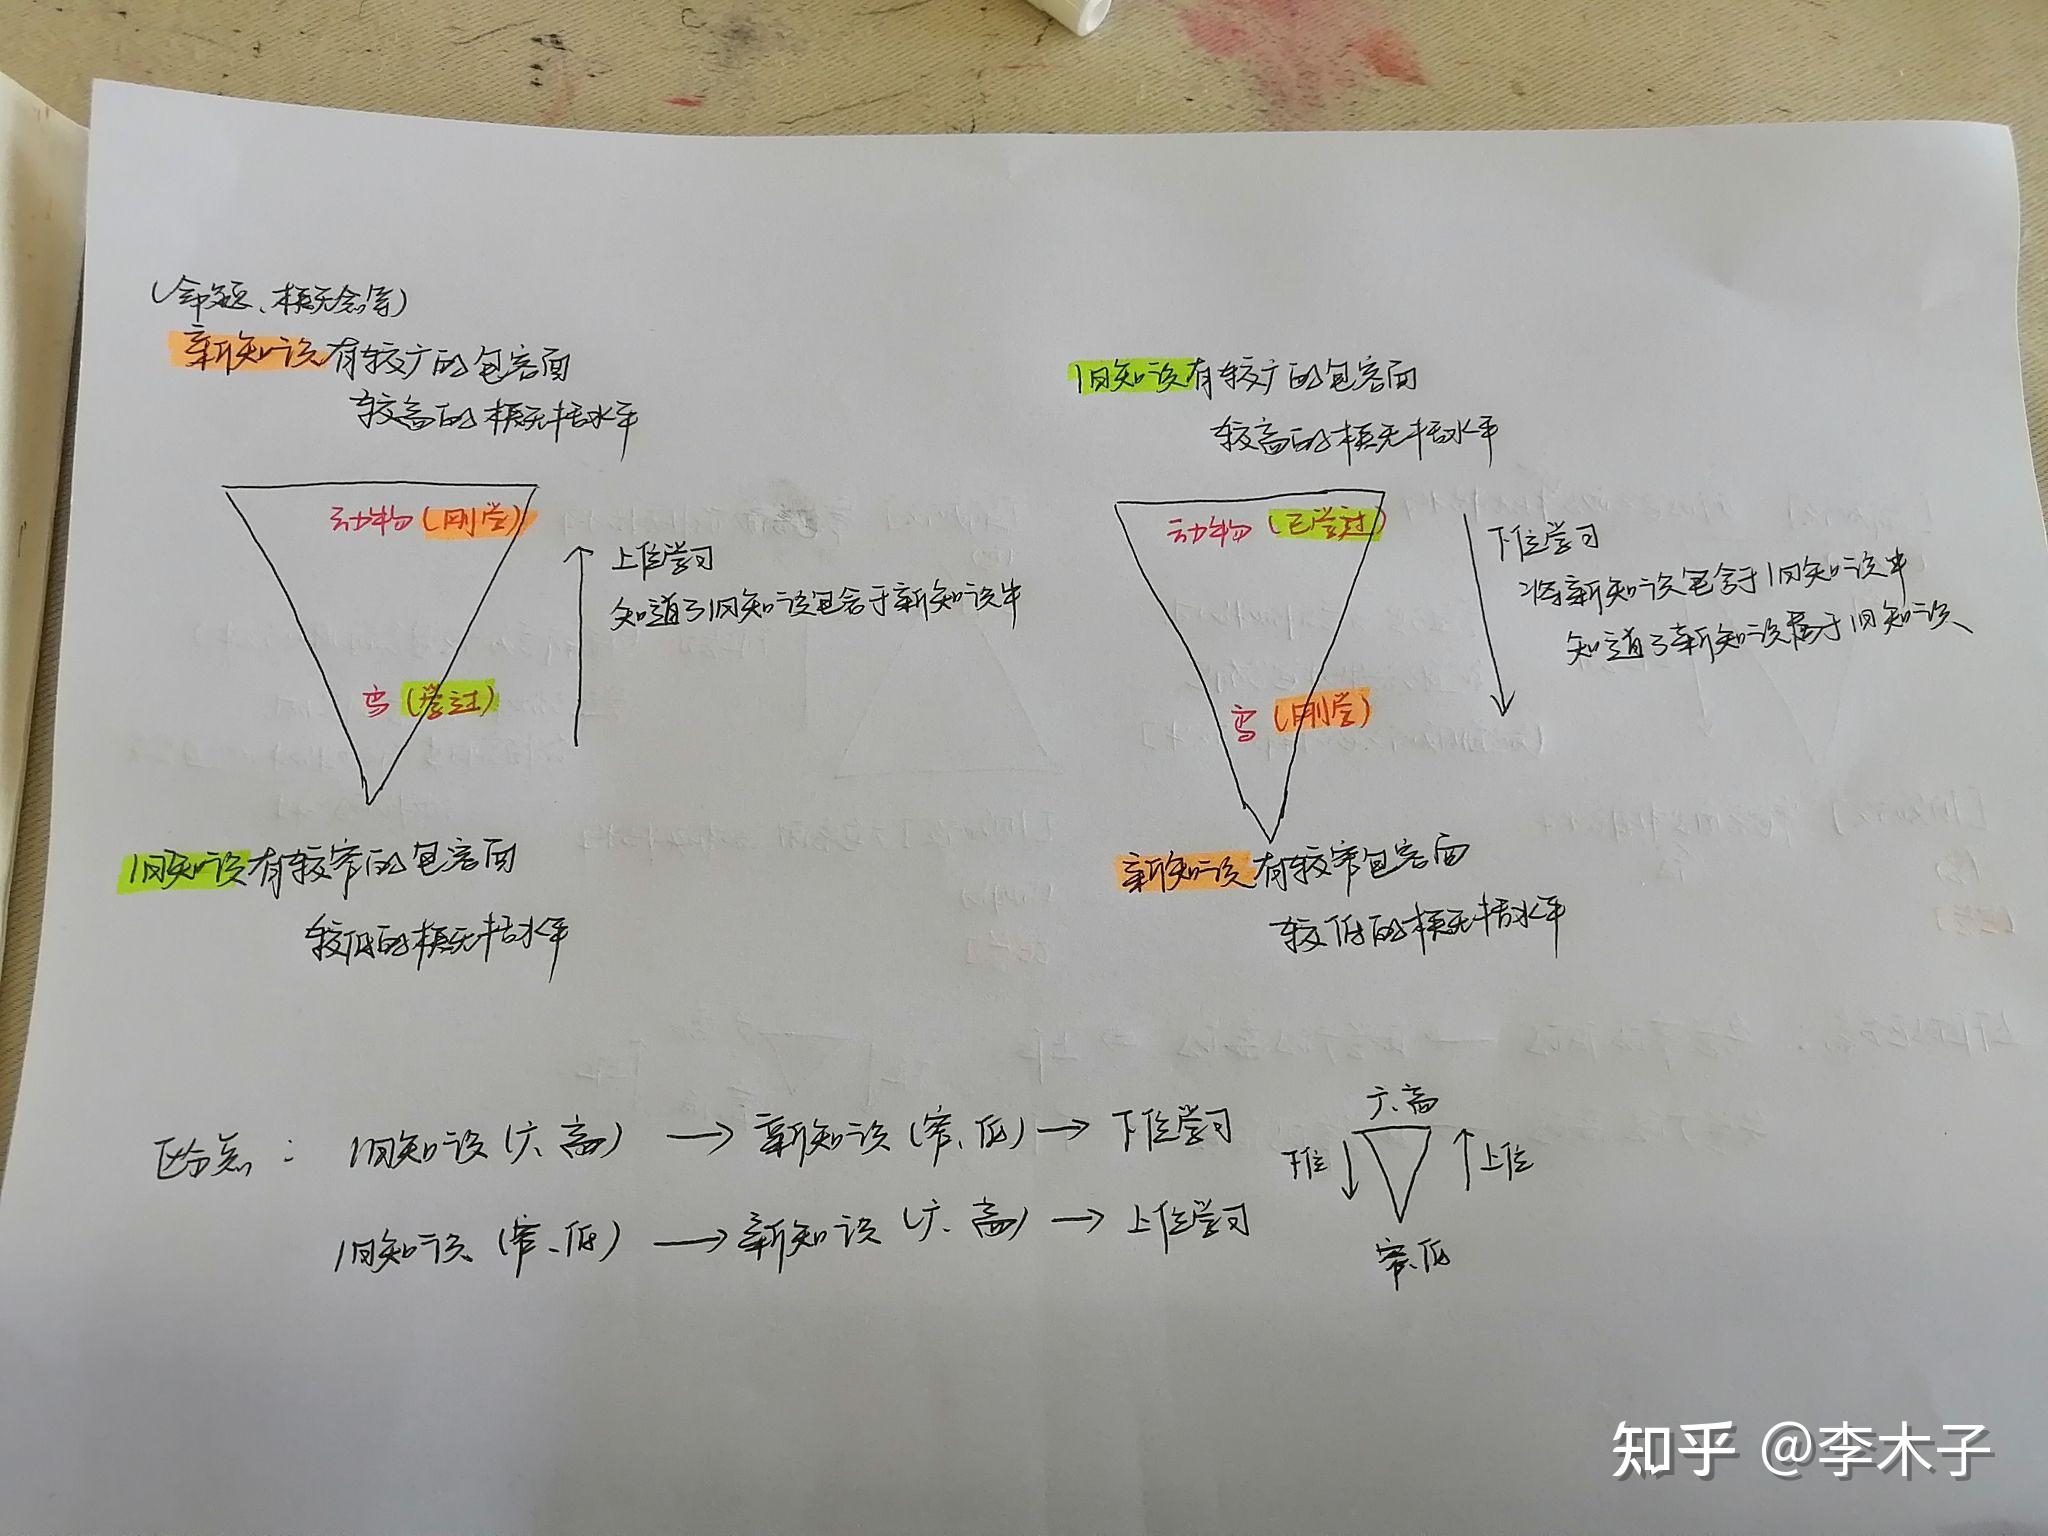 (命题、概念等)
新知识有较广的包容面
较高的概括水平
动物(刚学)
上位学习
知道了旧知识包含于新知识中
鸟(学过)
旧知识有较窄的包容面
较低的概括水平
旧知识有较广的包容面
较高的概括水平
动物(已学过)
下位学习
将新知识包含于旧知识中
知道了新知识属于旧知识
鸟(刚学)
新知识有较窄包容面
较低的概括水平
区分点: 旧知识(广、高) → 新知识(窄、低) → 下位学习
旧知识(窄、低) → 新知识(广、高) → 上位学习
广、高
下位 上位
窄、低
知乎 @李木子